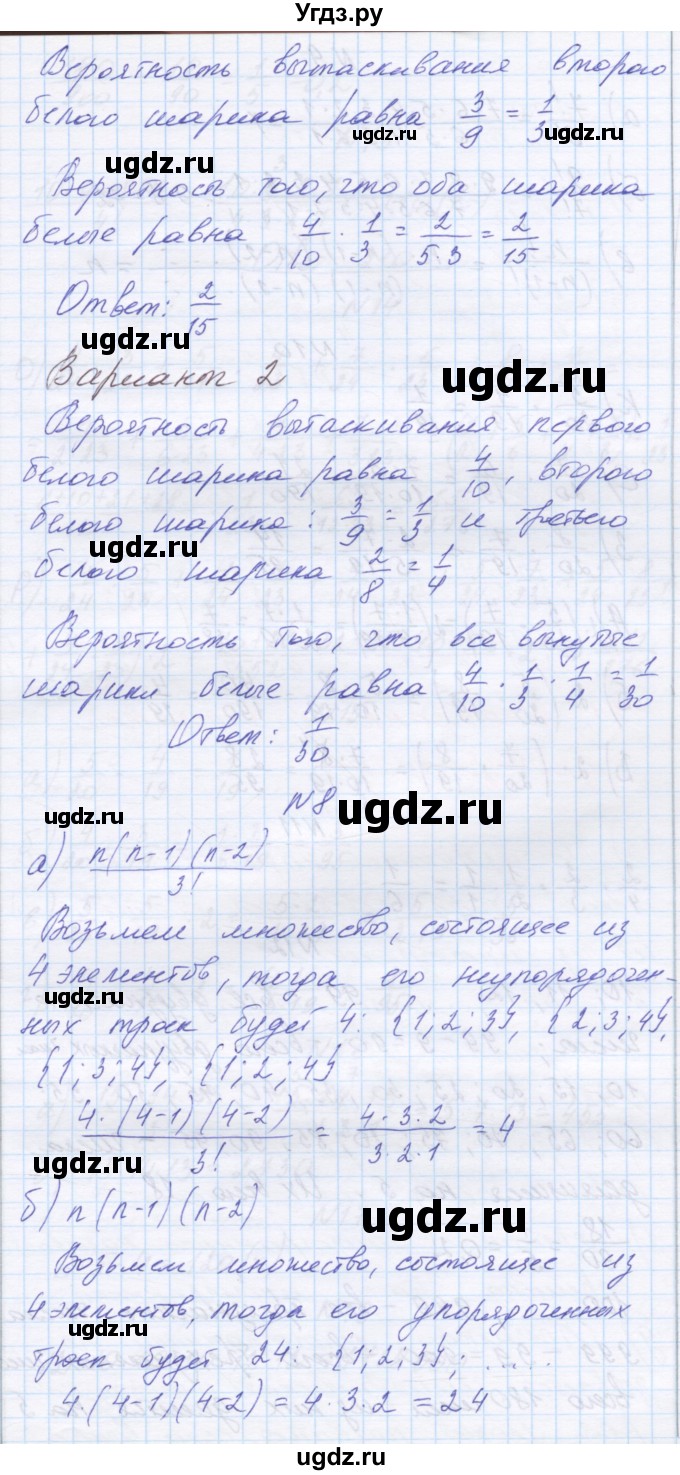 Угдз.ру
Вероятность вытаскивания второго
белого шарика равна 3/9 = 1/3
ugdz.ru ugdz.ru
ugdz.ru
Вероятность того, что оба шарика
белые равна 4/10 · 1/3 = 2/5·3 = 2/15
Ответ: 2/15
ugdz.ru
Вариант 2
ugdz.ru
Вероятность вытаскивания первого
белого шарика равна 4/10, второго
белого шарика: 3/9 = 1/3 и третьего
ugdz.ru
белого шарика 2/8 = 1/4
Вероятность того, что все вынутые
шарики белые равна 4/10 · 1/3 · 1/4 = 1/30
Ответ: 1/30
N8
ugdz.ru
ugdz.ru
а) n(n-1)(n-2)/3!
Возьмем множество, состоящее из
4 элементов, тогда его неупорядочен-
ugdz.ru
ных троек будет 4: {1;2;3}, {2;3;4},
{1;3;4}, {1;2;4}
4·(4-1)(4-2)/3! = 4·3·2/3·2·1 = 4
ugdz.ru
б) n(n-1)(n-2)
ugdz.ru
Возьмем множество, состоящее из
4 элементов, тогда его упорядоченных
ugdz.ru
троек будет 24: {1;2;3}; ....
4·(4-1)(4-2) = 4·3·2 = 24
ugdz.ru
ugdz.ru